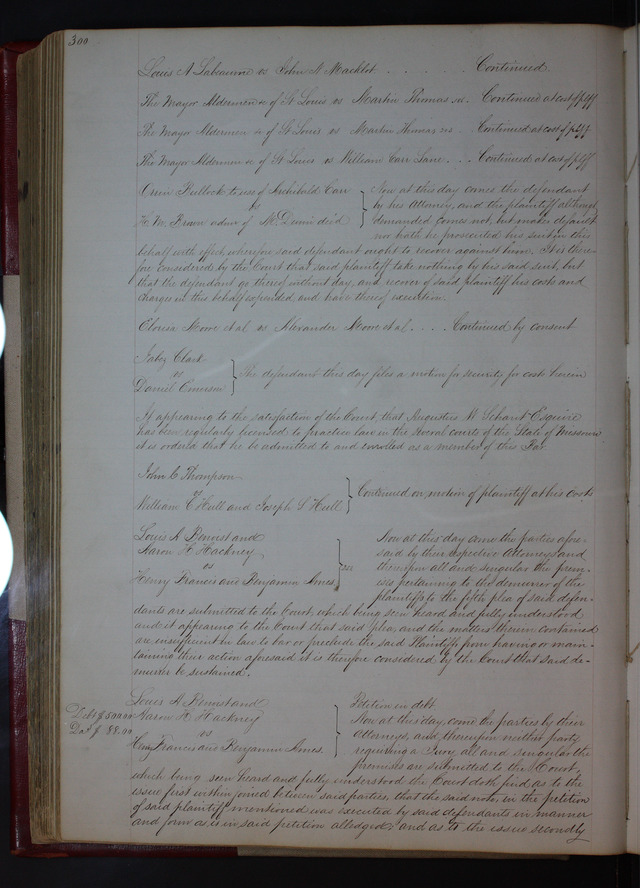 300
Louis A Labeaume vs John N Macklot . . . . . . . Continued
The Mayor Aldermen &c of St Louis vs Martin Thomas . Continued at cost of plff
The Mayor Aldermen &c of St Louis vs Martin Thomas . Continued at cost of plff
The Mayor Aldermen &c of St Louis vs William Carr Lane . . . Continued at cost of plff
Orrin Bullock to use of Archibald Carr
vs
H. W. Brown admr of decd
Now at this day comes the defendant
by his Attorney, and the plaintiff although
demanded comes not, but makes default
nor hath he prosecuted his suit in this
behalf with effect, wherefore said defendant ought to recover against him. It is there-
fore considered by the Court that said plaintiff take nothing by his said suit, but
that the defendant go thereof without day, and recover of said plaintiff his costs and
charges in this behalf expended, and have thereof execution.
Eloisa Rowe et al vs Alexander Rowe et al . . . . Continued by consent
Jabez Clark
vs
Daniel Emerson
The defendant this day files a motion for security for costs herein
It appearing to the satisfaction of the Court, that Augustus W. Esquire
has been regularly licensed to practice law in the several courts of the State of Missouri
it is ordered that he be admitted to and enrolled as a member of this Bar.
John C Thompson
vs
William C Hull and Joseph S Hull
Continued on motion of plaintiff at his costs
Louis A Benoist and
Aaron H. Hackney
vs
Henry Francis and Benjamin Ames
Now at this day come the parties afore-
said by their respective Attorneys and
thereupon all and singular the prem-
ises pertaining to the demurrer of the
plaintiffs to the fifth plea of said defen-
dants are submitted to the Court, which being seen heard and fully understood
and it appearing to the Court that said plea, and the matters therein contained
are insufficient in law to bar or preclude the said Plaintiffs from having or main-
taining their action aforesaid it is therefore considered by the Court that said de-
murrer be sustained.
Debt $500.00
Das $ 88.00
Louis A Benoist and
Aaron H. Hackney
vs
Henry Francis and Benjamin Ames.
Petition in debt
Now at this day, come the parties by their
Attorneys, and thereupon neither party
requiring a Jury, all and singular the
premises are submitted to the Court,
which being seen heard and fully understood the Court doth find as to the
issue first within joined between said parties, that the said note, in the petition
of said plaintiff mentioned was executed by said defendants in manner
and form as is in said petition alledged, and as to the issue secondly